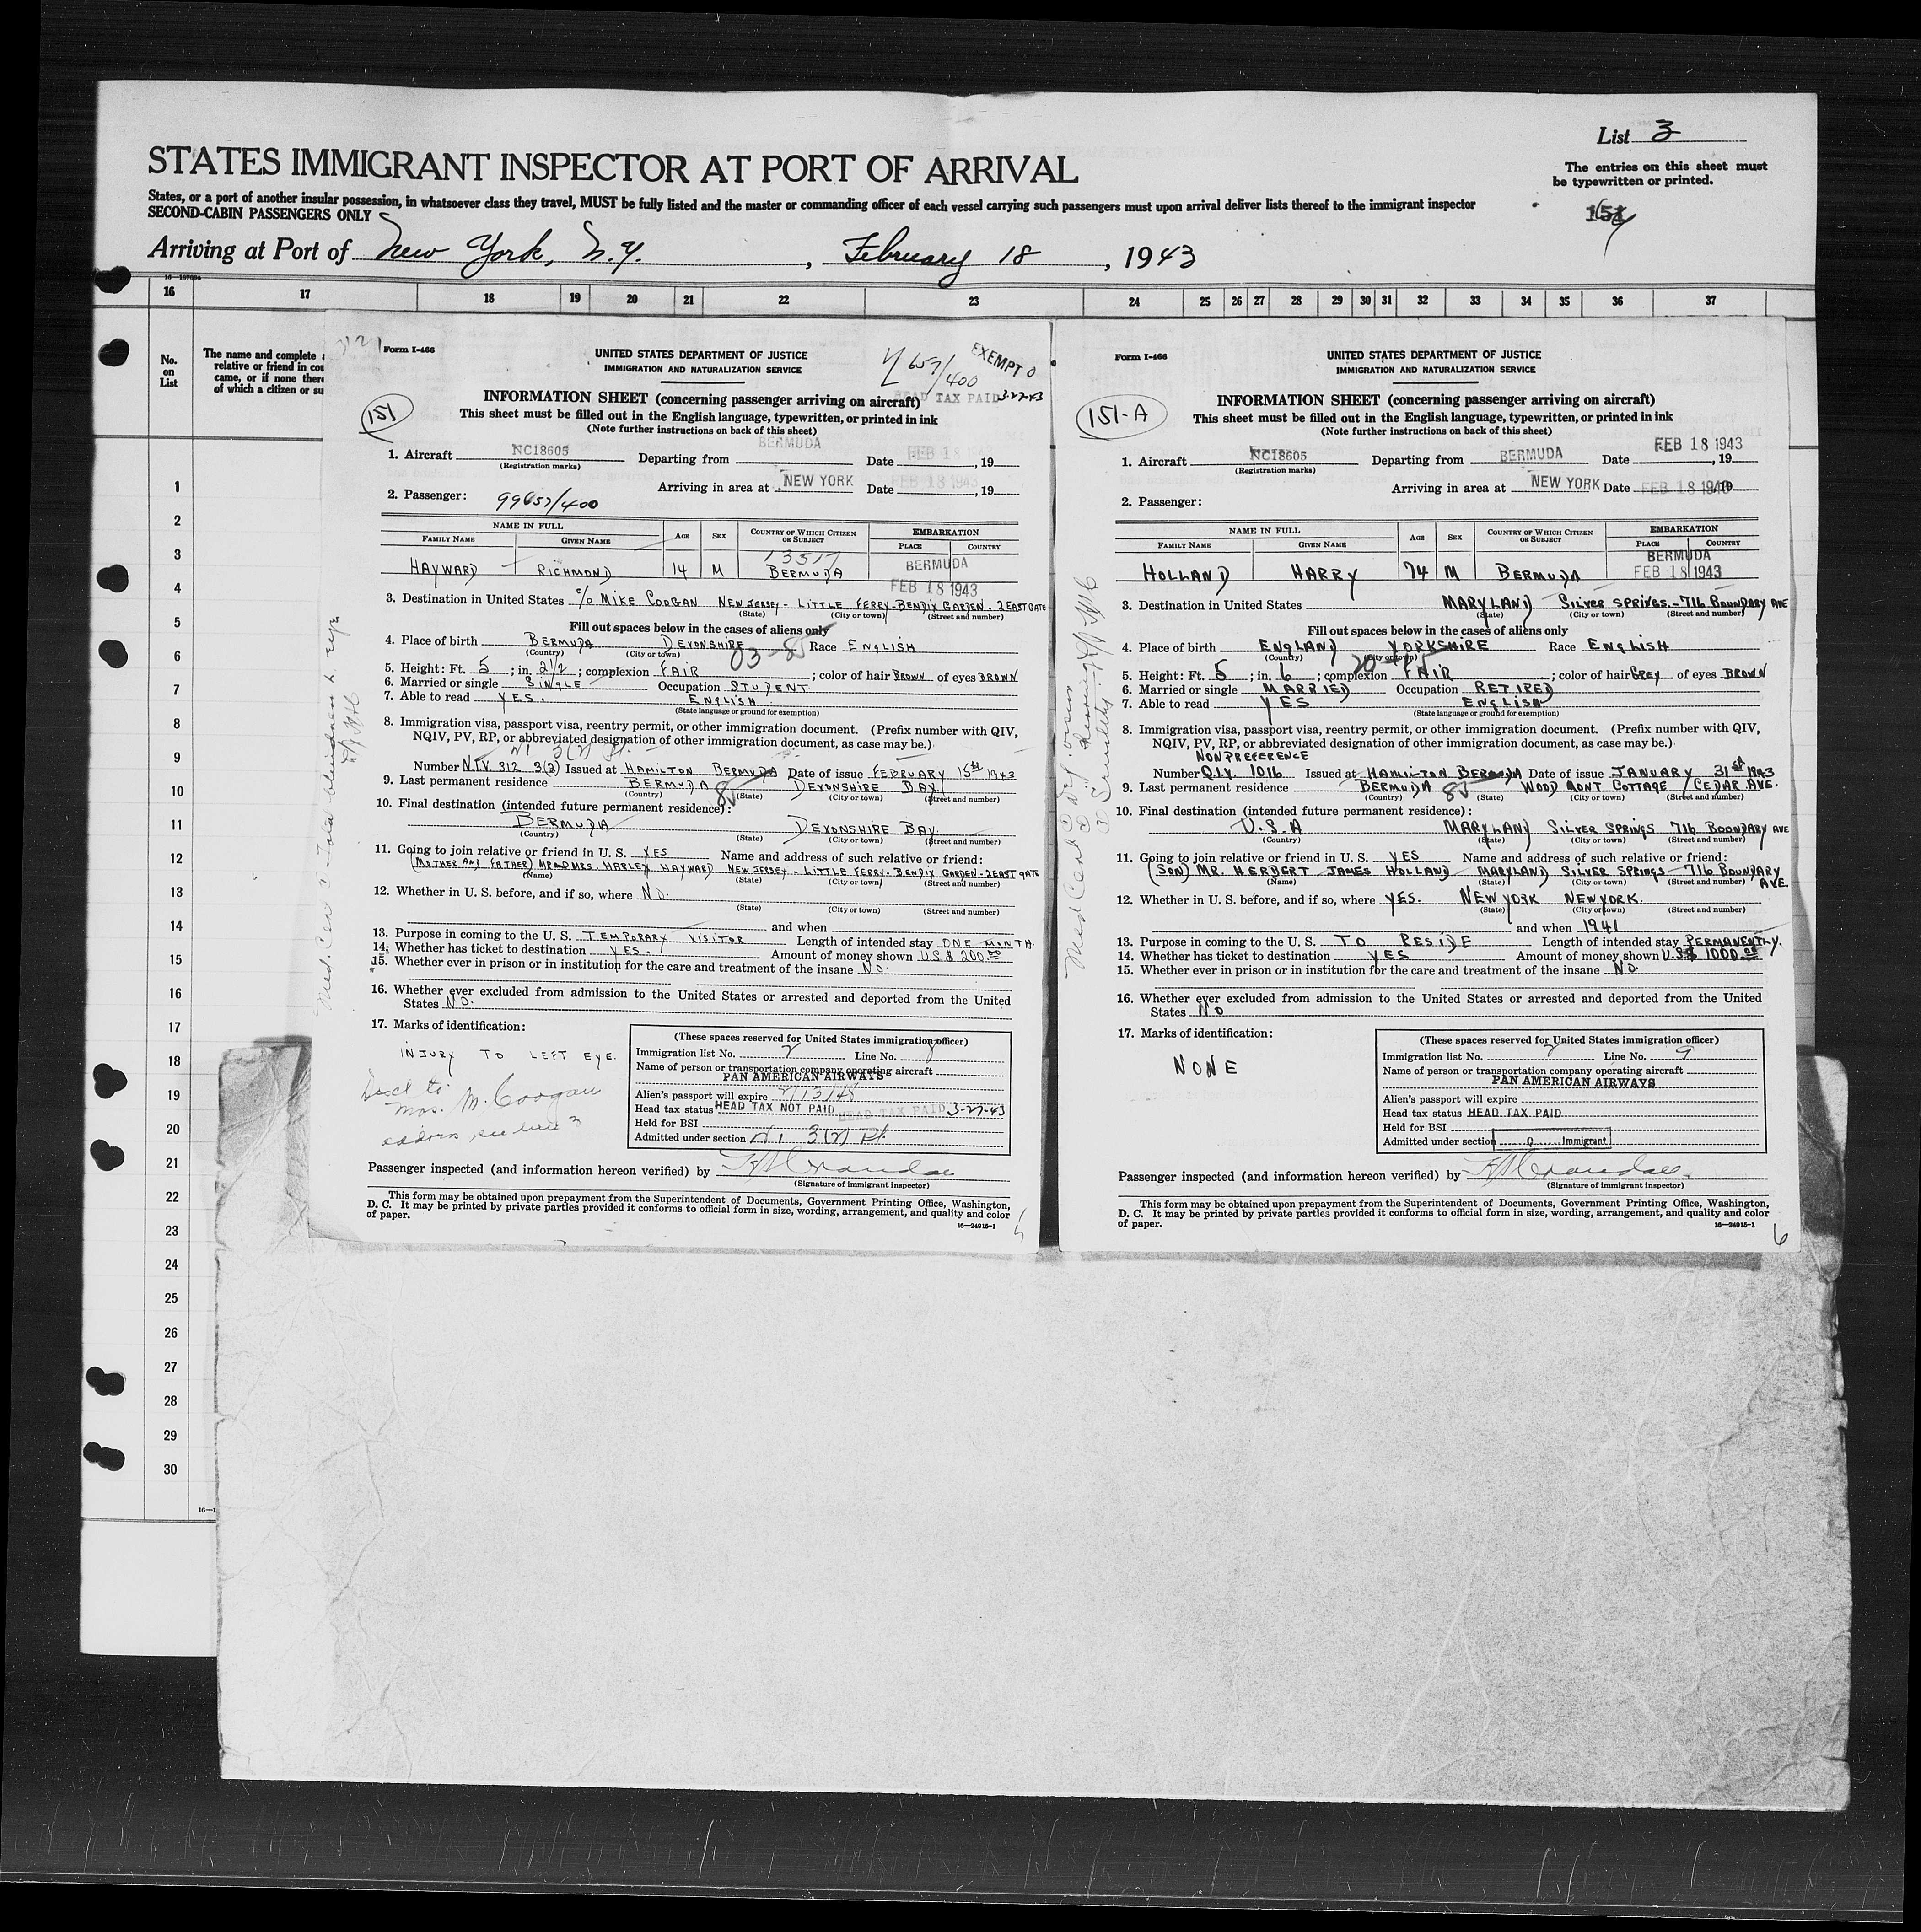 List 3
STATES IMMIGRANT INSPECTOR AT PORT OF ARRIVAL
The entries on this sheet must
be typewritten or printed.
States, or a port of another insular possession, in whatsoever class they travel, MUST be fully listed and the master or commanding officer of each vessel carrying such passengers must upon arrival deliver lists thereof to the immigrant inspector
SECOND-CABIN PASSENGERS ONLY
Arriving at Port of New York, N.Y. , February 18 , 1943
16 17 18 19 20 21 22 23 24 25 26 27 28 29 30 31 32 33 34 35 36 37
No.
on
List
The name and complete
relative or friend in cou
came, or if none there
of which a citizen or su
1
2
3
4
5
6
7
8
9
10
11
12
13
14
15
16
17
18
19
20
21
22
23
24
25
26
27
28
29
30
Form I-466
UNITED STATES DEPARTMENT OF JUSTICE
IMMIGRATION AND NATURALIZATION SERVICE
EXEMPT
HEAD TAX PAID 3-27-43
151
INFORMATION SHEET (concerning passenger arriving on aircraft)
This sheet must be filled out in the English language, typewritten, or printed in ink
(Note further instructions on back of this sheet)
1. Aircraft NC18605 Departing from BERMUDA Date FEB 18 , 19
(Registration marks)
Arriving in area at NEW YORK Date FEB 18 1943 , 19
2. Passenger: 99657/400
NAME IN FULL AGE SEX COUNTRY OF WHICH CITIZEN OR SUBJECT EMBARKATION
FAMILY NAME GIVEN NAME PLACE COUNTRY
13517
HAYWARD RICHMOND 14 M BERMUDA BERMUDA
FEB 18 1943
3. Destination in United States c/o MIKE COOGAN NEW JERSEY - LITTLE FERRY - BENDIX GARDEN - 2 EAST GATE
(State) (City or town) (Street and number)
Fill out spaces below in the cases of aliens only
4. Place of birth BERMUDA DEVONSHIRE Race ENGLISH
(Country) (City or town) 03-85
5. Height: Ft. 5 ; in. 2 1/2 ; complexion FAIR ; color of hair BROWN of eyes BROWN
6. Married or single SINGLE Occupation STUDENT
7. Able to read YES. ENGLISH
(State language or ground for exemption)
8. Immigration visa, passport visa, reentry permit, or other immigration document. (Prefix number with QIV,
NQIV, PV, RP, or abbreviated designation of other immigration document, as case may be.)
Number N.I.V. 312 3(2) Issued at HAMILTON BERMUDA Date of issue FEBRUARY 15th 1943
9. Last permanent residence BERMUDA DEVONSHIRE BAY
(Country) 85 (State) (City or town) (Street and number)
10. Final destination (intended future permanent residence):
BERMUDA DEVONSHIRE BAY.
(Country) (State) (City or town) (Street and number)
11. Going to join relative or friend in U. S. YES Name and address of such relative or friend:
(MOTHER AND FATHER) MR AND MRS. HARLEY HAYWARD NEW JERSEY - LITTLE FERRY - BENDIX GARDEN - 2 EAST GATE
(Name) (State) (City or town) (Street and number)
12. Whether in U. S. before, and if so, where NO.
(State) (City or town) (Street and number)
and when
13. Purpose in coming to the U. S. TEMPORARY VISITOR Length of intended stay ONE MONTH
14. Whether has ticket to destination YES. Amount of money shown U.S $ 200.00
15. Whether ever in prison or in institution for the care and treatment of the insane NO.
16. Whether ever excluded from admission to the United States or arrested and deported from the United
States NO.
17. Marks of identification:
INJURY TO LEFT EYE.
Mrs. M. Coogan
(These spaces reserved for United States immigration officer)
Immigration list No. 2 Line No. 8
Name of person or transportation company operating aircraft
PAN AMERICAN AIRWAYS
Alien's passport will expire
Head tax status HEAD TAX NOT PAID HEAD TAX PAID 3-27-43
Held for BSI
Admitted under section 3(2)
Passenger inspected (and information hereon verified) by
(Signature of immigrant inspector)
This form may be obtained upon prepayment from the Superintendent of Documents, Government Printing Office, Washington,
D. C. It may be printed by private parties provided it conforms to official form in size, wording, arrangement, and quality and color
of paper. 16—24915-1
Form I-466
UNITED STATES DEPARTMENT OF JUSTICE
IMMIGRATION AND NATURALIZATION SERVICE
151-A
INFORMATION SHEET (concerning passenger arriving on aircraft)
This sheet must be filled out in the English language, typewritten, or printed in ink
(Note further instructions on back of this sheet)
FEB 18 1943
1. Aircraft NC18605 Departing from BERMUDA Date , 19
(Registration marks)
Arriving in area at NEW YORK Date FEB 18 , 19
2. Passenger:
NAME IN FULL AGE SEX COUNTRY OF WHICH CITIZEN OR SUBJECT EMBARKATION
FAMILY NAME GIVEN NAME PLACE COUNTRY
BERMUDA
HOLLAND HARRY 74 M BERMUDA FEB 18 1943
3. Destination in United States MARYLAND SILVER SPRINGS. - 716 BOUNDARY AVE
(State) (City or town) (Street and number)
Fill out spaces below in the cases of aliens only
4. Place of birth ENGLAND YORKSHIRE Race ENGLISH
(Country) (City or town)
5. Height: Ft. 5 ; in. 6 ; complexion FAIR ; color of hair GREY of eyes BROWN
6. Married or single MARRIED Occupation RETIRED
7. Able to read YES ENGLISH
(State language or ground for exemption)
8. Immigration visa, passport visa, reentry permit, or other immigration document. (Prefix number with QIV,
NQIV, PV, RP, or abbreviated designation of other immigration document, as case may be.)
NON PREFERENCE
Number Q.I.V. 1016 Issued at HAMILTON BERMUDA Date of issue JANUARY 31st 1943
9. Last permanent residence BERMUDA WOOD MONT COTTAGE / CEDAR AVE.
(Country) 85 (State) (City or town) (Street and number)
10. Final destination (intended future permanent residence):
U.S.A MARYLAND SILVER SPRINGS 716 BOUNDARY AVE
(Country) (State) (City or town) (Street and number)
11. Going to join relative or friend in U. S. YES Name and address of such relative or friend:
(SON) MR. HERBERT JAMES HOLLAND MARYLAND SILVER SPRINGS - 716 BOUNDARY AVE.
(Name) (State) (City or town) (Street and number)
12. Whether in U. S. before, and if so, where YES. NEW YORK NEW YORK.
(State) (City or town) (Street and number)
and when 1941
13. Purpose in coming to the U. S. TO RESIDE Length of intended stay PERMANENTLY.
14. Whether has ticket to destination YES Amount of money shown U.S $ 1000.00
15. Whether ever in prison or in institution for the care and treatment of the insane NO.
16. Whether ever excluded from admission to the United States or arrested and deported from the United
States NO
17. Marks of identification:
NONE
(These spaces reserved for United States immigration officer)
Immigration list No. 2 Line No. 9
Name of person or transportation company operating aircraft
PAN AMERICAN AIRWAYS
Alien's passport will expire
Head tax status HEAD TAX PAID
Held for BSI
Admitted under section Immigrant
Passenger inspected (and information hereon verified) by
(Signature of immigrant inspector)
This form may be obtained upon prepayment from the Superintendent of Documents, Government Printing Office, Washington,
D. C. It may be printed by private parties provided it conforms to official form in size, wording, arrangement, and quality and color
of paper. 16—24915-1
6